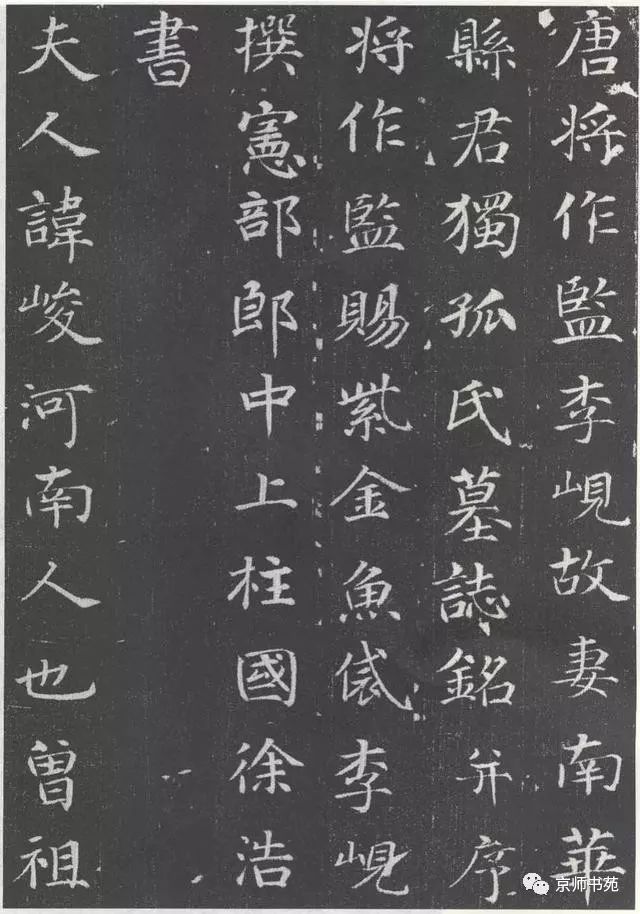 唐将作監李峴故妻南華
縣君獨孤氏墓誌銘并序
将作監賜紫金魚袋李峴
撰憲部郎中上柱國徐浩
書
夫人諱峻河南人也曾祖
京师书苑